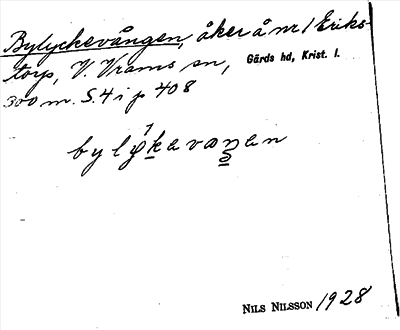 Bylyckevången, åker å nr 1 Eriks-
torp, V. Vrams sn, Gärds hd, Krist. l.
300 m. S. 4 i p 408
NILS NILSSON 1928